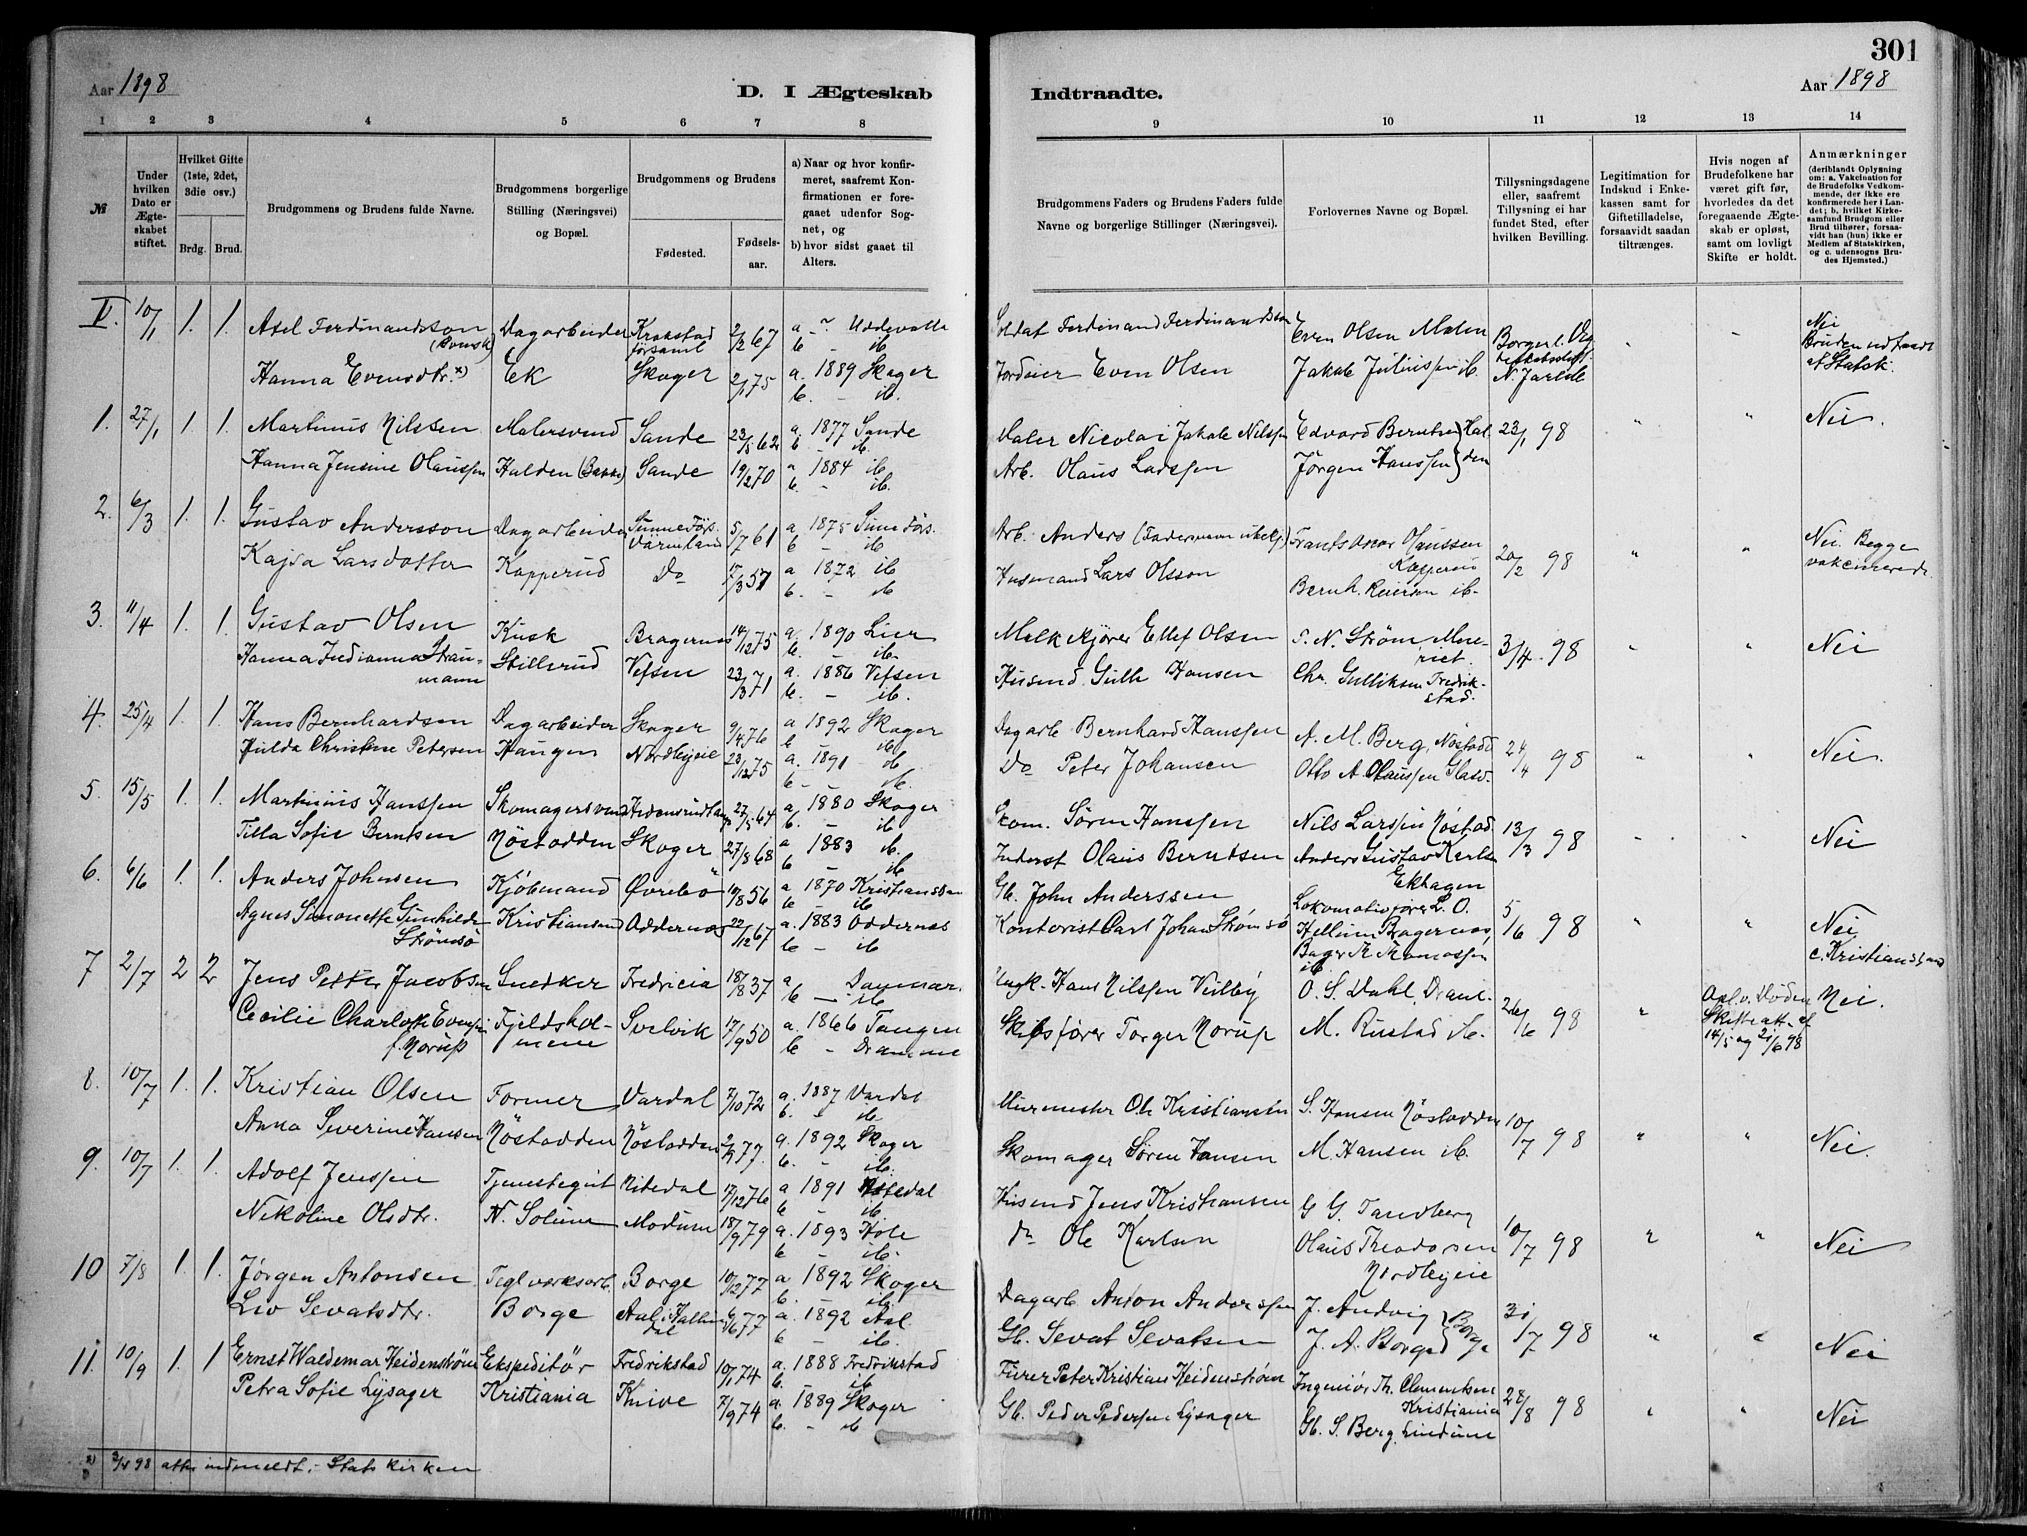 301
Aar 1898
D. I Ægteskab
Indtraadte.
Aar 1898
1 2 3 4 5 6 7 8
9 10 11 12 13 14
№
Under hvilken Dato er Ægteskabet stiftet.
Hvilket Gifte (1ste, 2det, 3die osv.)
Brdg. Brud.
Brudgommens og Brudens fulde Navne.
Brudgommens borgerlige Stilling (Næringsvei) og Bopæl.
Brudgommens og Brudens
Fødested.
Fødselsaar.
a) Naar og hvor konfirmeret, saafremt Konfirmationen er foregaaet udenfor Sognet, og
b) hvor sidst gaaet til Alters.
Brudgommens Faders og Brudens Faders fulde Navne og borgerlige Stillinger (Næringsvei).
Forlovernes Navne og Bopæl.
Tillysningsdagene eller, saafremt Tillysning ei har fundet Sted, efter hvilken Bevilling.
Legitimation for Indskud i Enkekassen samt for Giftetilladelse, forsaavidt saadan tiltrænges.
Hvis nogen af Brudefolkene har været gift før, hvorledes da det foregaaende Ægteskab er opløst, samt om lovligt Skifte er holdt.
Anmærkninger (deriblandt Oplysning om: a. Vakcination for de Brudefolks Vedkommende, der ikke ere konfirmerede her i Landet; b. hvilket Kirkesamfund Brudgom eller Brud tilhører, forsaavidt han (hun) ikke er Medlem af Statskirken, og c. udensogns Brudes Hjemsted.)
10/1 1. 1. Axel Ferdinandsson Dagarbeider Krokstad 2/2 67 a - Uddevalla
b - ib
Soldat Ferdinand Ferdinandsson Even Olsen Borgerl. Nei
Hanna Evensdtr. x) Ek Skoger 2/1 75 a. 1889 Skoger
b. - ib.
Jordeier Even Olsen Jakob Juliussen ib. N. Jarlsb. Bruden udtraadt af Statsk.
1. 27/1 1. 1. Martinus Nilssen Malersvend Sande 23/5 62 a. 1877 Sande
b - ib.
Maler Nicolai Jakob Nilssen Edvard Berntsen Halden 23/1 98 " " Nei.
Hanna Jensine Olaussen Halden (Bakke) Sande 19/2 70 a 1884 ib
b. - ib.
Arb. Olaus Larssen Jørgen Hanssen
2. 6/3 1. 1. Gustav Andersson Dagarbeider Sunne Förs. Värmland 5/7 61 a. 1875 Sunne Förs.
b - ib
Arb. Anders (Faderens navn ubekj.) Frants Oscar Olaussen Kopperud 20/2 98 " " Nei. Begge vakcinerede.
Kajsa Larsdotter Kopperud Do 17/3 57 a 1872 ib
b. - ib
Husmand Lars Olsson Bernh. Reiersen ib.
3. 11/4 1. 1. Gustav Olsen Kusk Bragernes 14/12 75 a. 1890 Lier
b. - ib.
Melkekjører Ellef Olsen S. N. Strøm Meieriet. 3/4 98 " " Nei
Hanna Indianna Straumann Stillerud Vefsen 23/3 71 a. 1886 Vefsen
b. - ib.
Husmd. Gulb. Hansen Chr. Gulliksen Fredrikstad.
4. 25/4 1. 1. Hans Bernhardsen Dagarbeider Skoger 9/4 76 a 1892 Skoger
b - ib
Dagarb. Bernhard Hanssen A. M. Berg, Nøstodd. 24/4 98 " " Nei.
Hulda Christine Petersen Haugen Nordbyeie 23/12 75 a. 1891 ib
b - ib.
Do Peter Johansen Otto A. Olaussen Glasv.
5. 15/5 1. 1. Martinius Hanssen Skomagersvend Hedensrudtangen 27/5 64 a. 1880 Skoger
b. - ib
Skom. Søren Hanssen Nils Larssen Nøstod. 13/3 98 " " Nei
Tilla Sofie Berntsen Nøstodden Skoger 27/8 68 a 1883 ib.
b - ib
Inderst Olaus Berntsen Anders Gustav Karlsen Ekhagen
6. 6/6 1. 1. Anders Johnsen Kjøbmand Øvrebø 10/8 56 a 1870 Kristianssand
b - ib
Gb. John Anderssen Lokomotivfører L. O. Hellum Bragernes, 5/6 98 " " Nei
Agnes Simonette Gunhilde Strømsø Kristianssand Oddernes 22/12 67 a. 1883 Oddernes
b - ib
Kontorist Carl Johan Strømsø Bager Th. Thomassen ib. c. Kristianssand
7 2/7 2 2 Jens Petter Jacobsen Snedker Fredricia 18/8 37 a Danmark
b - ib
Ungk. Hans Nilssen Veilby O. S. Dahl, Dramm. 26/6 98 " Opl. v. Døden Skifteatt. af 14/5 og 21/6 98 Nei.
Cecilie Charlotte Evensen f. Norup Fjeldsholmene Svelvik 17/9 50 a. 1866 Tangen
b - Drammen
Skibsfører Torger Norup M. Rustad ib.
8. 10/7 1. 1. Kristian Olsen Former Vardal 7/10 72 a. 1887 Vardal
b. " ib
Murmester Ole Kristiansen S. Hansen Nøstodden 10/7 98 " " Nei.
Anna Severine Hansen Nøstodden Nøstodden 2/1 77 a. 1892 Skoger
b. - ib.
Skomager Søren Hansen M. Hansen ib.
9. 10/7 1. 1. Adolf Jenssen Tjenestegut Nitedal 17/12 76 a 1891 Nitedal
b - ib
Husmd Jens Kristiansen G. G. Tandberg 10/7 98 " " Nei
Nikoline Olsdtr. N. Solum Modum 18/9 79 a. 1893 Hole
b - ib.
do Ole Karlsen Olaus Theodorsen Nordbyeie
10 7/8 1. 1. Jørgen Antonsen Teglværksarb. Borge 10/12 77 a 1892 Skoger
b. - ib.
Dagarb. Anton Anderssen J. Andvig Borge 31/7 98 " " Nei
Liv Sevatsdtr. Borge Aal i Hallingdal 6/6 77 a. 1892 Aal.
b - ib.
Gb. Sevat Sevatsen J. A. Borge
11. 10/9 1. 1 Ernst Waldemar Heidenstrøm Ekspeditør Fredrikstad 10/1 74 a. 1888 Fredrikstad
b. - ib
Furer Peter Kristian Heidenstrøm Ingeniør Th. Clementsen Kristiania 28/8 98 " " Nei
Petra Sofie Lysager Kristiania Knive 7/9 74 a. 1889 Skoger
b. - ib
Gb. Peder Pedersen Lysager Gb. S. Berg, Lindum
x) 98 atter indmeldt i Statskirken